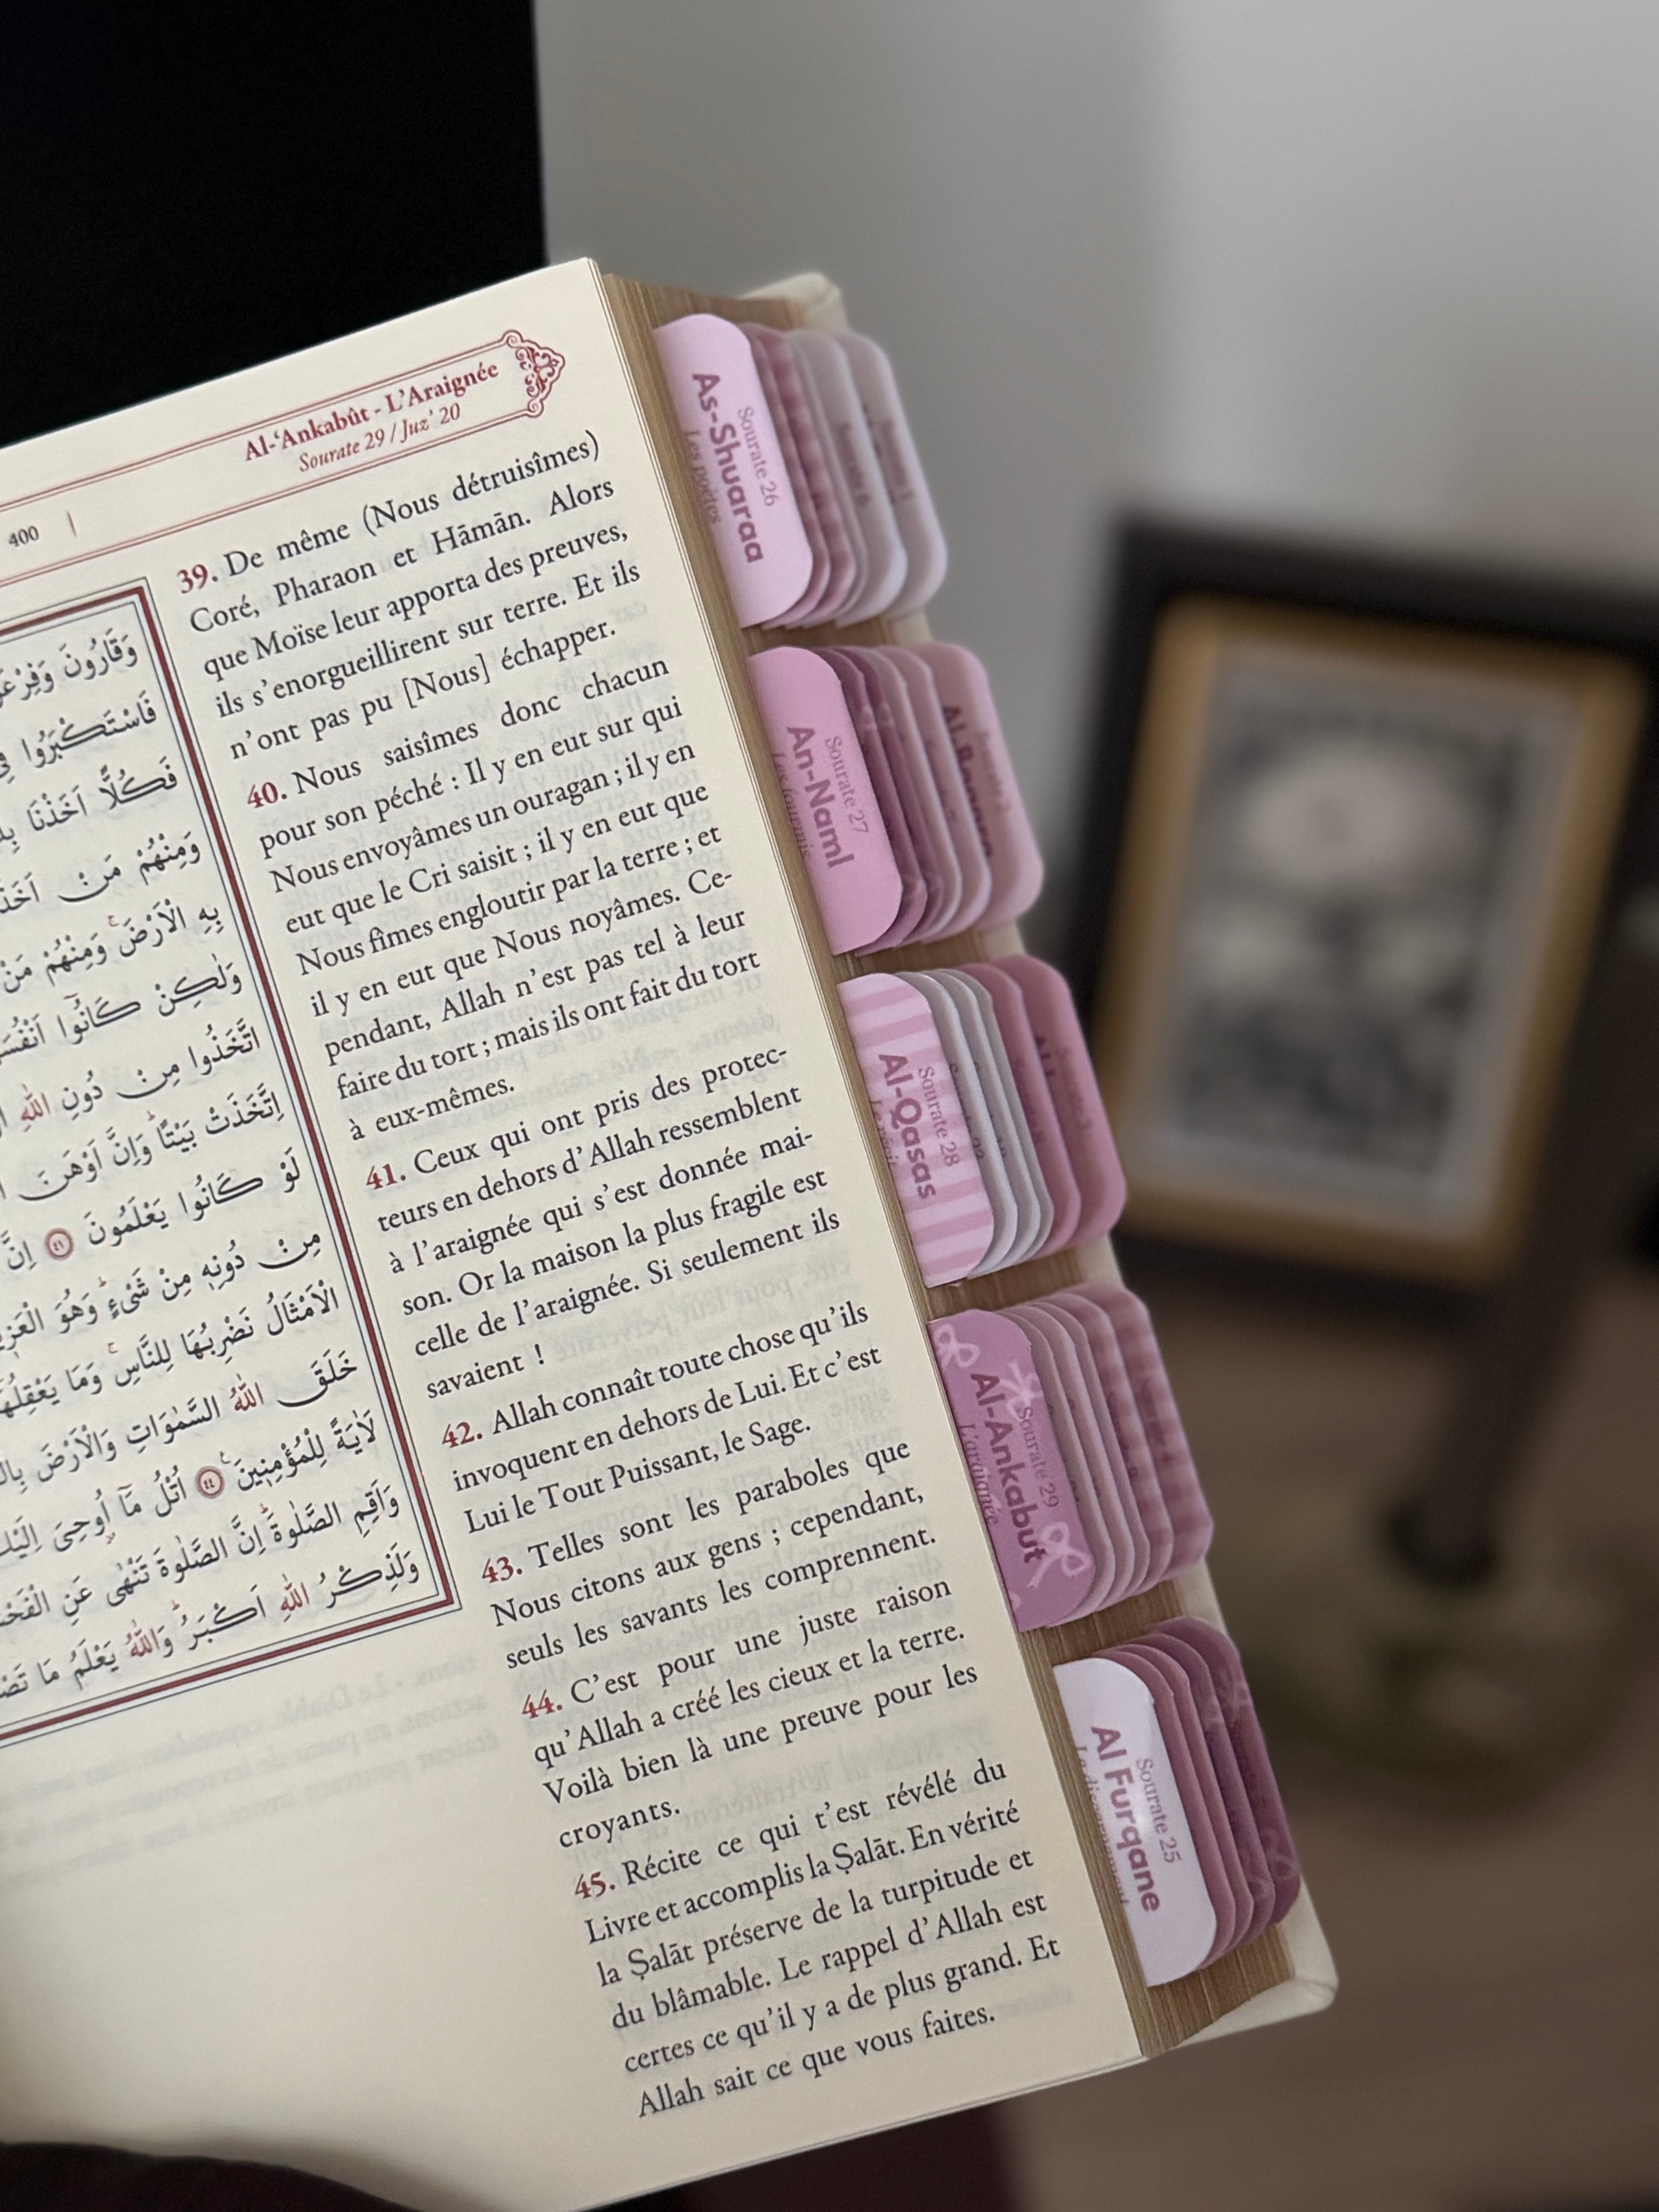 400
Al-‘Ankabût - L’Araignée
Sourate 29 / Juz’ 20
39. De même (Nous détruisîmes)
Coré, Pharaon et Hāmān. Alors
que Moïse leur apporta des preuves,
ils s’enorgueillirent sur terre. Et ils
n’ont pas pu [Nous] échapper.
40. Nous saisîmes donc chacun
pour son péché : Il y en eut sur qui
Nous envoyâmes un ouragan ; il y en
eut que le Cri saisit ; il y en eut que
Nous fîmes engloutir par la terre ; et
il y en eut que Nous noyâmes. Ce-
pendant, Allah n’est pas tel à leur
faire du tort ; mais ils ont fait du tort
à eux-mêmes.
41. Ceux qui ont pris des protec-
teurs en dehors d’Allah ressemblent
à l’araignée qui s’est donnée mai-
son. Or la maison la plus fragile est
celle de l’araignée. Si seulement ils
savaient !
42. Allah connaît toute chose qu’ils
invoquent en dehors de Lui. Et c’est
Lui le Tout Puissant, le Sage.
43. Telles sont les paraboles que
Nous citons aux gens ; cependant,
seuls les savants les comprennent.
44. C’est pour une juste raison
qu’Allah a créé les cieux et la terre.
Voilà bien là une preuve pour les
croyants.
45. Récite ce qui t’est révélé du
Livre et accomplis la Ṣalāt. En vérité
la Ṣalāt préserve de la turpitude et
du blâmable. Le rappel d’Allah est
certes ce qu’il y a de plus grand. Et
Allah sait ce que vous faites.
وَقَارُونَ
فَاسْتَكْبَرُوا
فَكُلًّا اَخَذْنَا
وَمِنْهُمْ مَنْ
بِهِ الْاَرْضَ وَمِنْهُمْ مَنْ
وَلٰكِنْ كَانُٓوا
اتَّخَذُوا مِنْ دُونِ اللّٰهِ
اِتَّخَذَتْ بَيْتًا وَاِنَّ اَوْهَنَ
لَوْ كَانُوا يَعْلَمُونَ ٤١ اِنَّ
مِنْ دُونِهٖ مِنْ شَيْءٍ وَهُوَ
الْاَمْثَالُ نَضْرِبُهَا لِلنَّاسِ وَمَا
خَلَقَ اللّٰهُ السَّمٰوَاتِ وَالْاَرْضَ
لَاٰيَةً لِلْمُؤْمِنٖينَ ٤٤ اُتْلُ مَٓا اُوحِيَ اِلَيْكَ
وَاَقِمِ الصَّلٰوةَ اِنَّ الصَّلٰوةَ تَنْهٰى عَنِ
وَلَذِكْرُ اللّٰهِ اَكْبَرُ وَاللّٰهُ يَعْلَمُ مَا
Sourate 26
As-Shuaraa
Les poètes
Sourate 27
An-Naml
Les fourmis
Sourate 28
Al-Qasas
Sourate 29
Al-Ankabut
L’araignée
Sourate 25
Al Furqane